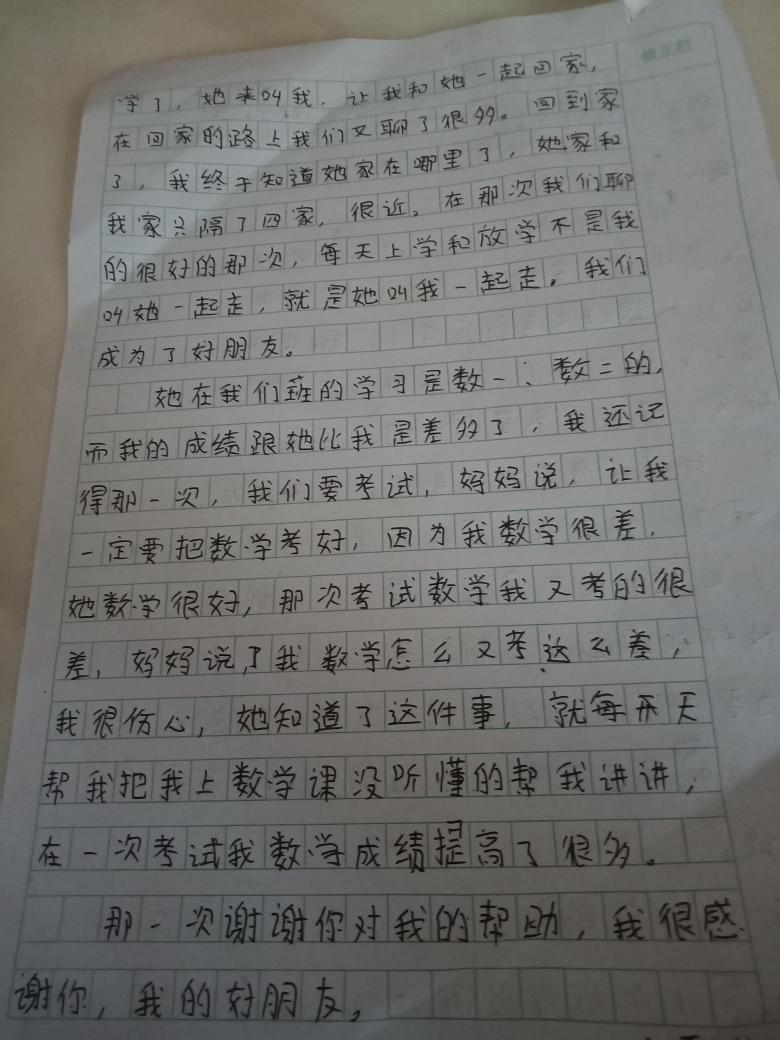 学了，她来叫我，让我和她一起回家，
在回家的路上我们又聊了很多。回到家
了，我终于知道她家在哪里了，她家和
我家只隔了四家，很近。在那次我们聊
的很好的那次，每天上学和放学不是我
叫她一起走，就是她叫我一起走。我们
成为了好朋友。
她在我们班的学习是数一、数二的，
而我的成绩跟她比我是差多了，我还记
得那一次，我们要考试，妈妈说，让我
一定要把数学考好，因为我数学很差，
她数学很好，那次考试数学我又考的很
差，妈妈说了我数学怎么又考这么差，
我很伤心，她知道了这件事，就每天
帮我把我上数学课没听懂的帮我讲讲，
在一次考试我数学成绩提高了很多。
那一次谢谢你对我的帮助，我很感
谢你，我的好朋友。
修正栏